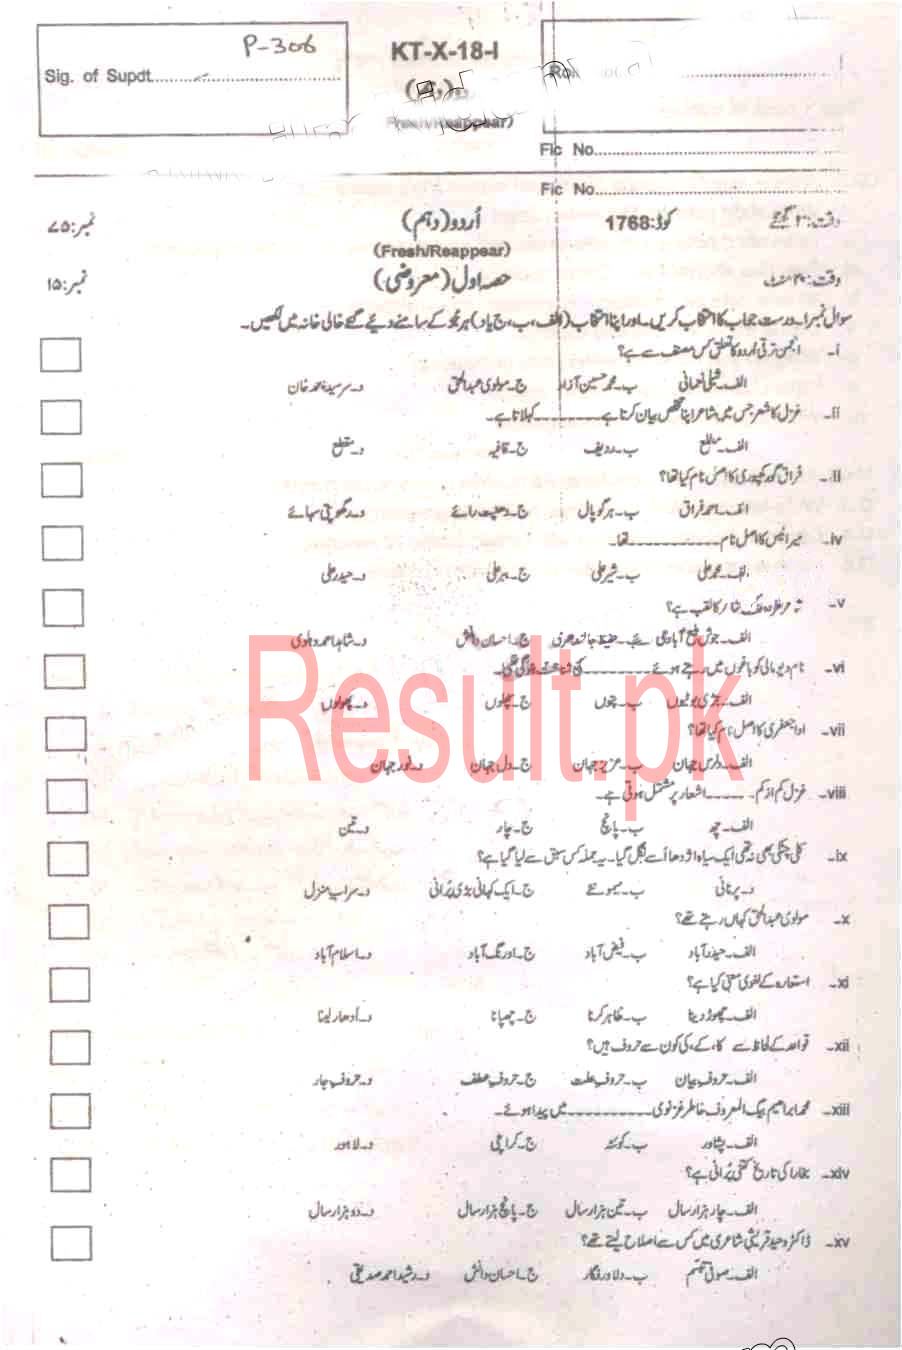 P-306
KT-X-18-I
Sig. of Supdt
(Fresh/Reappear)
Fic No.
Fic No.
نمبر:۷۵ اُردو(دہم) کوڈ:1768 وقت:۳ گھنٹے
(Fresh/Reappear)
نمبر:۱۵ حصہ اول (معروضی) وقت:۲۰ منٹ
سوال نمبر۱۔ درست جواب کا انتخاب کریں۔ اور اپنا انتخاب (الف، ب، ج یا د) ہر جُز کے سامنے دیئے گئے خالی خانہ میں لکھیں۔
i۔ انجمن ترقی اُردو کا تعلق کس مصنف سے ہے؟
الف۔ شبلی نعمانی ب۔ محمد حسین آزاد ج۔ مولوی عبدالحق د۔ سرسید احمد خان
ii۔ غزل کا شعر جس میں شاعر اپنا تخلص بیان کرتا ہے۔۔۔۔۔۔۔۔ کہلاتا ہے۔
الف۔ مطلع ب۔ ردیف ج۔ قافیہ د۔ مقطع
iii۔ فراق گورکھپوری کا اصل نام کیا تھا؟
الف۔ احمد فراق ب۔ ہرگوپال ج۔ دھنپت رائے د۔ رگھوپتی سہائے
iv۔ میر انیس کا اصل نام ۔۔۔۔۔۔۔۔۔۔ تھا۔
الف۔ محمد علی ب۔ شیر علی ج۔ ببر علی د۔ حیدر علی
v۔ کا لقب ہے؟
الف۔ جوش ملیح آبادی ب۔ حفیظ جالندھری ج۔ احسان دانش د۔ شاہد احمد دہلوی
vi۔ نام دیو مالی کو باغوں میں رہتے ہوئے ۔۔۔۔۔۔۔۔ کی شناخت ہو گئی تھی۔
الف۔ جڑی بوٹیوں ب۔ پتوں ج۔ پھلوں د۔ پھولوں
vii۔ ادا جعفری کا اصل نام کیا تھا؟
الف۔ دلرس جہان ب۔ عزیز جہان ج۔ دل جہان د۔ نور جہان
viii۔ غزل کم از کم ۔۔۔۔۔ اشعار پر مشتمل ہوتی ہے۔
الف۔ چھ ب۔ پانچ ج۔ چار د۔ تین
ix۔ کلی چٹکی بھی نہ تھی ایک سیاہ اژدھا اُسے نگل گیا۔ یہ جملہ کس سبق سے لیا گیا ہے؟
ب۔ سمجھوتے ج۔ ایک کہانی بڑی پُرانی د۔ سراب منزل
x۔ مولوی عبدالحق کہاں رہتے تھے؟
الف۔ حیدرآباد ب۔ فیض آباد ج۔ اورنگ آباد د۔ اسلام آباد
xi۔ استعارہ کے لغوی معنی کیا ہے؟
الف۔ چھوڑ دینا ب۔ ظاہر کرنا ج۔ چھپانا د۔ اُدھار لینا
xii۔ قواعد کے لحاظ سے کا، کے، کی کون سے حروف ہیں؟
الف۔ حروف بیان ب۔ حروف علت ج۔ حروف عطف د۔ حروف جار
xiii۔ محمد ابراھیم بیگ المعروف خاطر غزنوی ۔۔۔۔۔۔۔۔۔۔ میں پیدا ہوئے۔
الف۔ پشاور ب۔ کوئٹہ ج۔ کراچی د۔ لاہور
xiv۔ بخارا کی تاریخ کتنی پُرانی ہے؟
الف۔ چار ہزار سال ب۔ تین ہزار سال ج۔ پانچ ہزار سال د۔ دو ہزار سال
xv۔ ڈاکٹر وحید قریشی شاعری میں کس سے اصلاح لیتے تھے؟
الف۔ صوفی تبسم ب۔ دلاور فگار ج۔ احسان دانش د۔ رشید احمد صدیقی
Result.pk